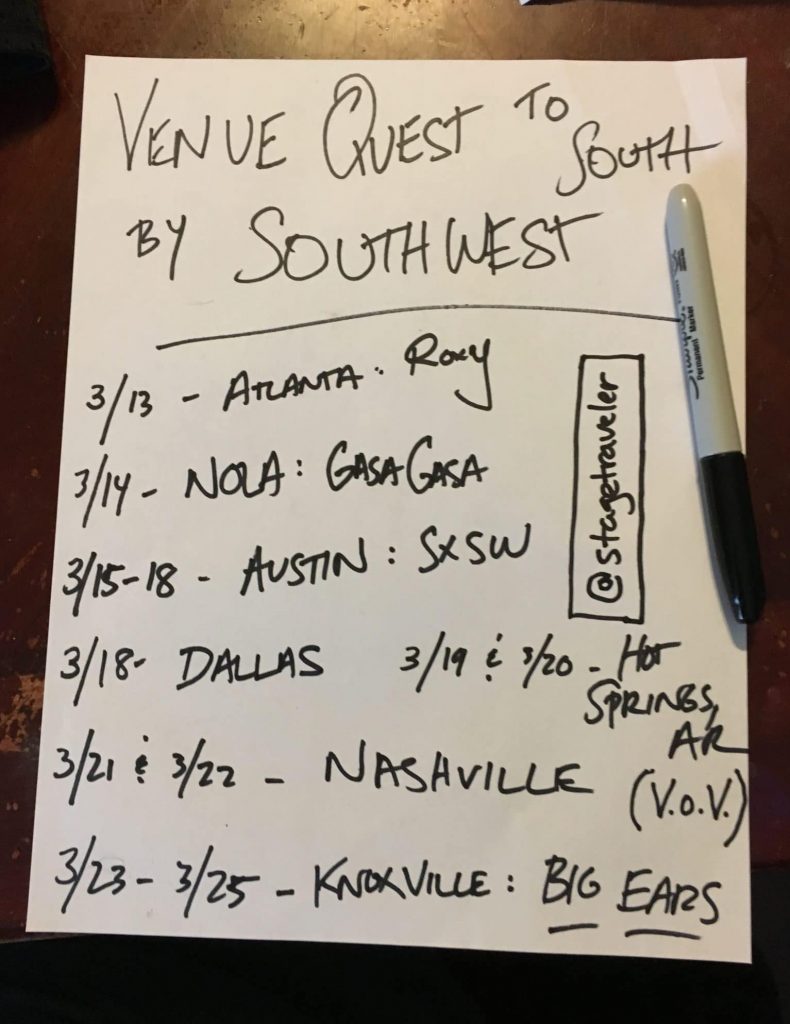 VENUE QUEST TO SOUTH
BY SOUTHWEST
3/13 - ATLANTA: Roxy
3/14 - NOLA: GASAGASA
3/15-18 - AUSTIN: SXSW
@stagetraveler
3/18- DALLAS
3/19 & 3/20 - HOT
SPRINGS,
AR
(V.O.V.)
3/21 & 3/22 - NASHVILLE
3/23 - 3/25 - KNOXVILLE: BIG EARS
Sharpie
Permanent Marker